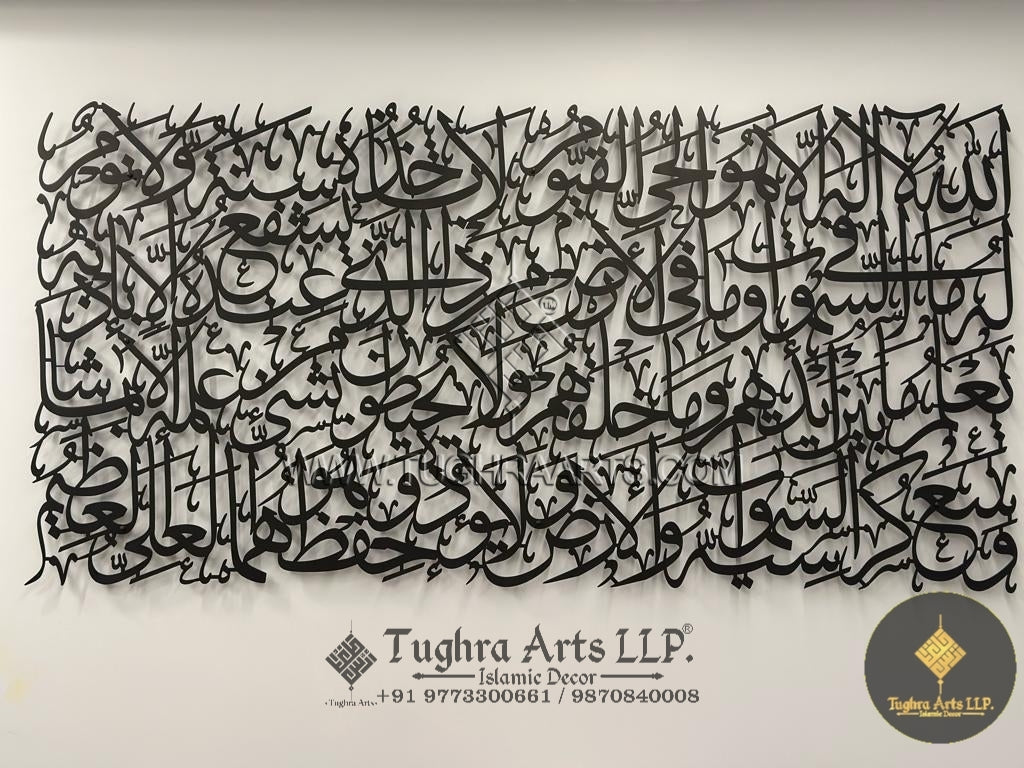 الله لا إله إلا هو الحي القيوم لا تأخذه سنة ولا نوم
له ما في السموات وما في الأرض من ذا الذي يشفع عنده إلا بإذنه
يعلم ما بين أيديهم وما خلفهم ولا يحيطون بشيء من علمه إلا بما شاء
وسع كرسيه السموات والأرض ولا يؤده حفظهما وهو العلي العظيم
WWW.TUGHRAARTS.COM
Tughra Arts LLP.®
Islamic Decor
Tughra Arts
+91 9773300661 / 9870840008
Tughra Arts LLP.
Islamic Decor